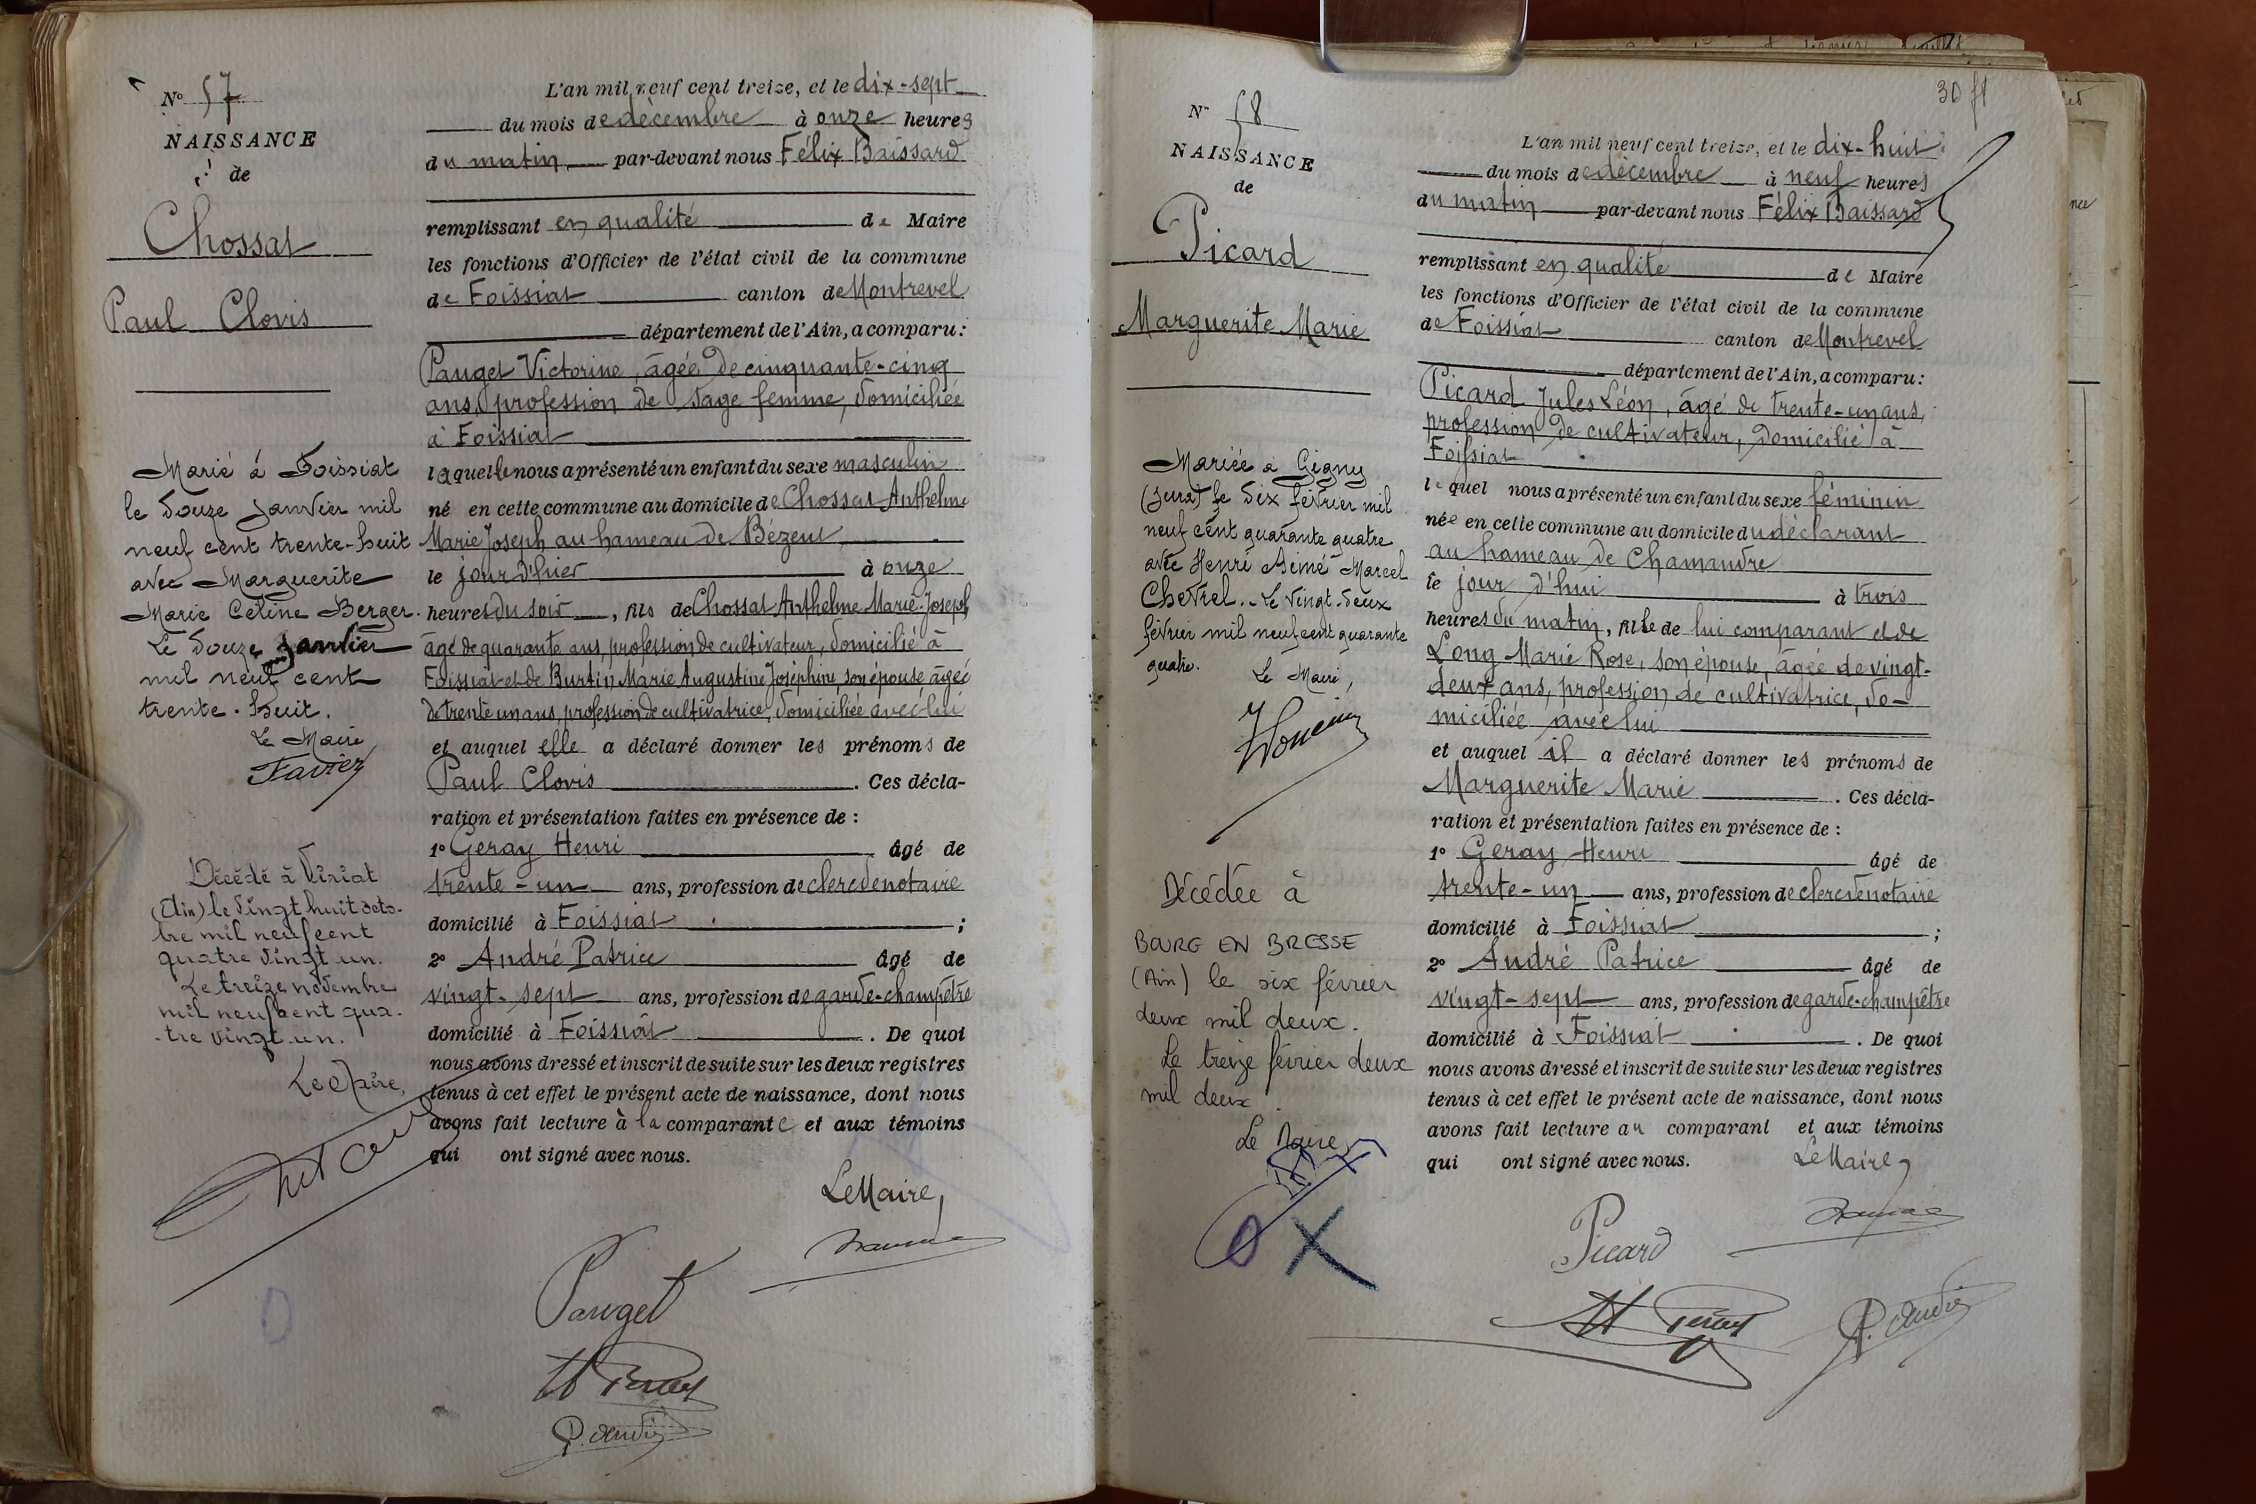 N° 57
NAISSANCE
de
Chossat
Paul Clovis
Marié à Foissiat
le douze janvier mil
neuf cent trente-huit
avec Marguerite
Marie Céline Berger.
Le douze janvier
mil neuf cent
trente-huit.
Le Maire
Favier
Décédé à Viriat
(Ain) le vingt huit octo-
bre mil neuf cent
quatre vingt un.
Le treize novembre
mil neuf cent qua-
tre vingt un.
Le Maire,
L'an mil neuf cent treize, et le dix-sept
du mois de décembre à onze heures
du matin par-devant nous Félix Baissard
remplissant en qualité de Maire
les fonctions d'Officier de l'état civil de la commune
de Foissiat canton de Montrevel
département de l'Ain, a comparu :
Pauget Victorine, âgée de cinquante-cinq
ans, profession de sage femme, domiciliée
à Foissiat
laquelle nous a présenté un enfant du sexe masculin
né en cette commune au domicile de Chossat Anthelme
Marie Joseph au hameau de Bézeut
le jour d'hier à onze
heures du soir, fils de Chossat Anthelme Marie-Joseph
âgé de quarante ans, profession de cultivateur, domicilié à
Foissiat et de Burtin Marie Augustine Joséphine, son épouse âgée
de trente un ans, profession de cultivatrice, domiciliée avec lui
et auquel elle a déclaré donner les prénoms de
Paul Clovis . Ces décla-
ration et présentation faites en présence de :
1° Geray Henri âgé de
trente-un ans, profession de clerc de notaire
domicilié à Foissiat ;
2° André Patrice âgé de
vingt-sept ans, profession de garde-champêtre
domicilié à Foissiat . De quoi
nous avons dressé et inscrit de suite sur les deux registres
tenus à cet effet le présent acte de naissance, dont nous
avons fait lecture à la comparante et aux témoins
qui ont signé avec nous.
Le Maire,
Pauget
H Geray
P. André
30 f1
N° 58
NAISSANCE
de
Picard
Marguerite Marie
Mariée à Gigny
(Jura) le dix février mil
neuf cent quarante quatre
avec Henri Aimé Marcel
Chevrel. Le vingt-deux
février mil neuf cent quarante
quatre.
Le Maire,
Décédée à
BOURG EN BRESSE
(Ain) le six février
deux mil deux.
Le treize février deux
mil deux.
Le Maire
L'an mil neuf cent treize, et le dix-huit
du mois de décembre à neuf heures
du matin par-devant nous Félix Baissard
remplissant en qualité de Maire
les fonctions d'Officier de l'état civil de la commune
de Foissiat canton de Montrevel
département de l'Ain, a comparu :
Picard Jules Léon, âgé de trente-un ans,
profession de cultivateur, domicilié à
Foissiat
lequel nous a présenté un enfant du sexe féminin
née en cette commune au domicile du déclarant
au hameau de Chamandre
le jour d'hui à trois
heures du matin, fille de lui comparant et de
Long Marie Rose, son épouse, âgée de vingt-
deux ans, profession de cultivatrice, do-
miciliée avec lui
et auquel il a déclaré donner les prénoms de
Marguerite Marie . Ces décla-
ration et présentation faites en présence de :
1° Geray Henri âgé de
trente-un ans, profession de clerc de notaire
domicilié à Foissiat ;
2° André Patrice âgé de
vingt-sept ans, profession de garde-champêtre
domicilié à Foissiat . De quoi
nous avons dressé et inscrit de suite sur les deux registres
tenus à cet effet le présent acte de naissance, dont nous
avons fait lecture au comparant et aux témoins
qui ont signé avec nous.
Le Maire,
Picard
H Geray
P. André